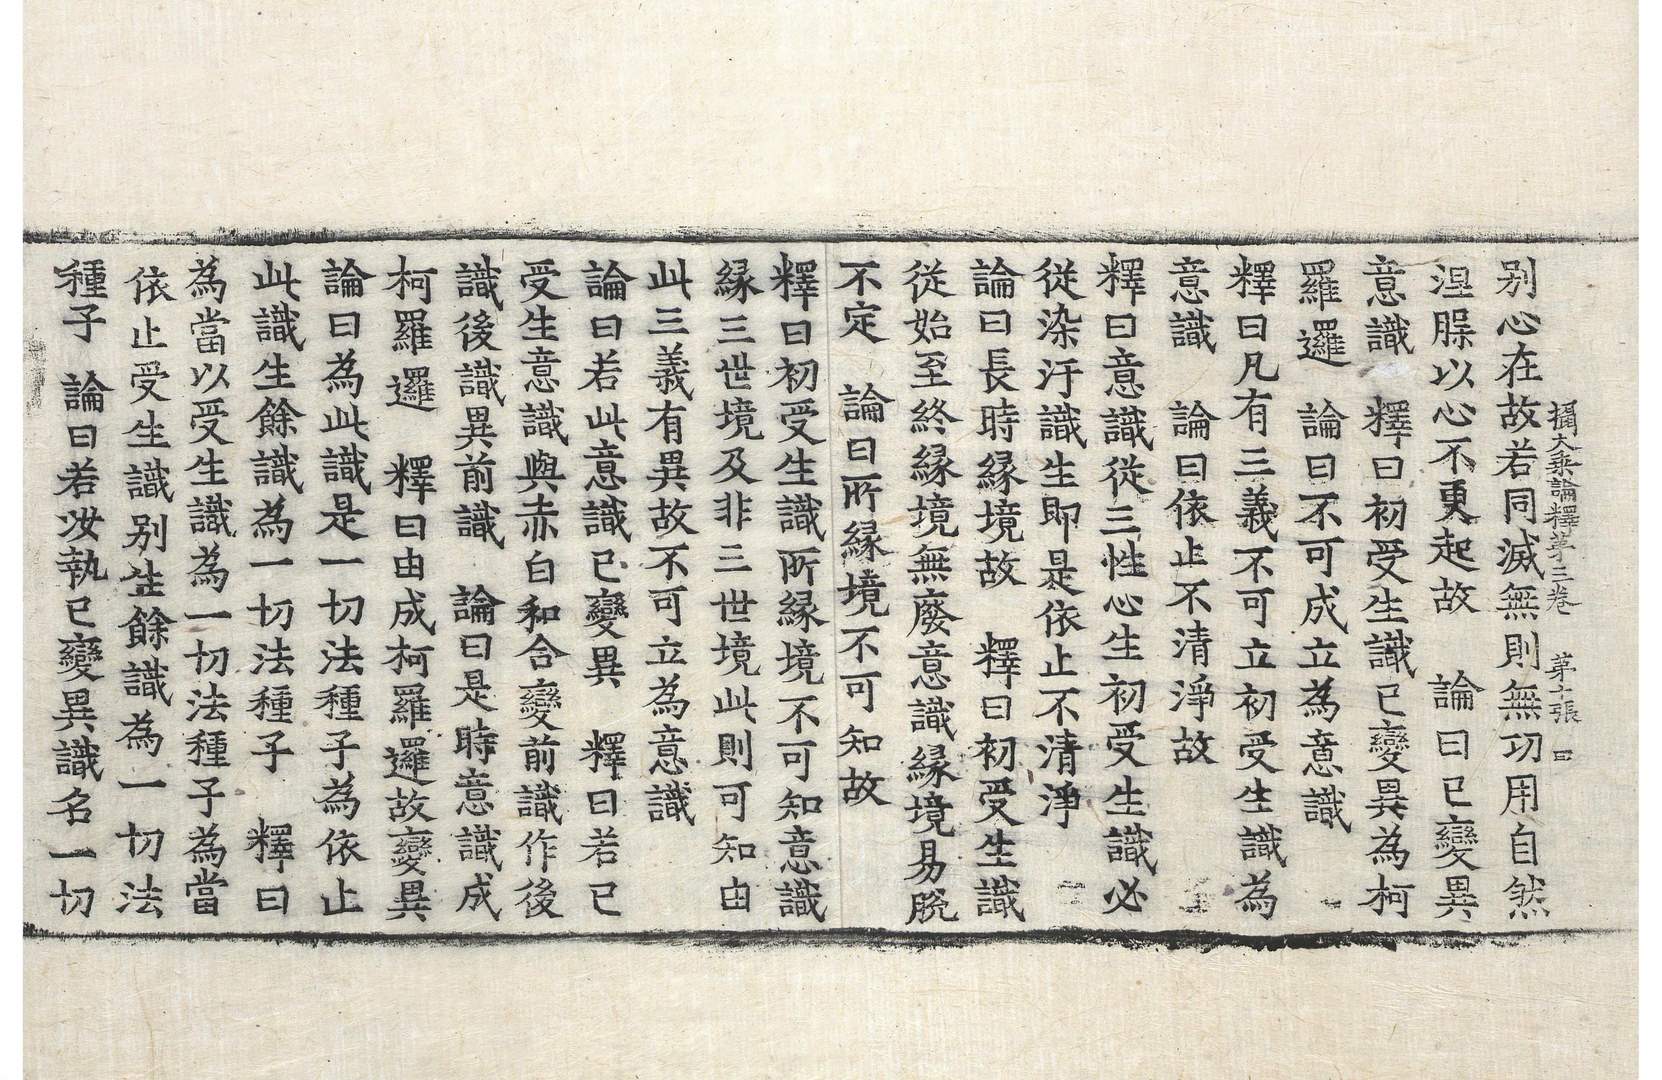 攝大乘論釋第三卷　第十張　曰
别心在故若同滅無則無功用自然
涅脲以心不更起故　論曰已變異
意識　釋曰初受生識已變異為柯
羅邏　論曰不可成立為意識
釋曰凡有三義不可立初受生識為
意識　論曰依止不清淨故
釋曰意識從三性心生初受生識必
從染汙識生即是依止不清淨
論曰長時縁境故　釋曰初受生識
從始至終縁境無廢意識縁境易脱
不定　論曰所縁境不可知故
釋曰初受生識所縁境不可知意識
縁三世境及非三世境此則可知由
此三義有異故不可立為意識
論曰若此意識已變異　釋曰若已
受生意識與赤白和合變前識作後
識後識異前識　論曰是時意識成
柯羅邏　釋曰由成柯羅邏故變異
論曰為此識是一切法種子為依止
此識生餘識為一切法種子　釋曰
為當以受生識為一切法種子為當
依止受生識别生餘識為一切法
種子　論曰若汝執已變異識名一切